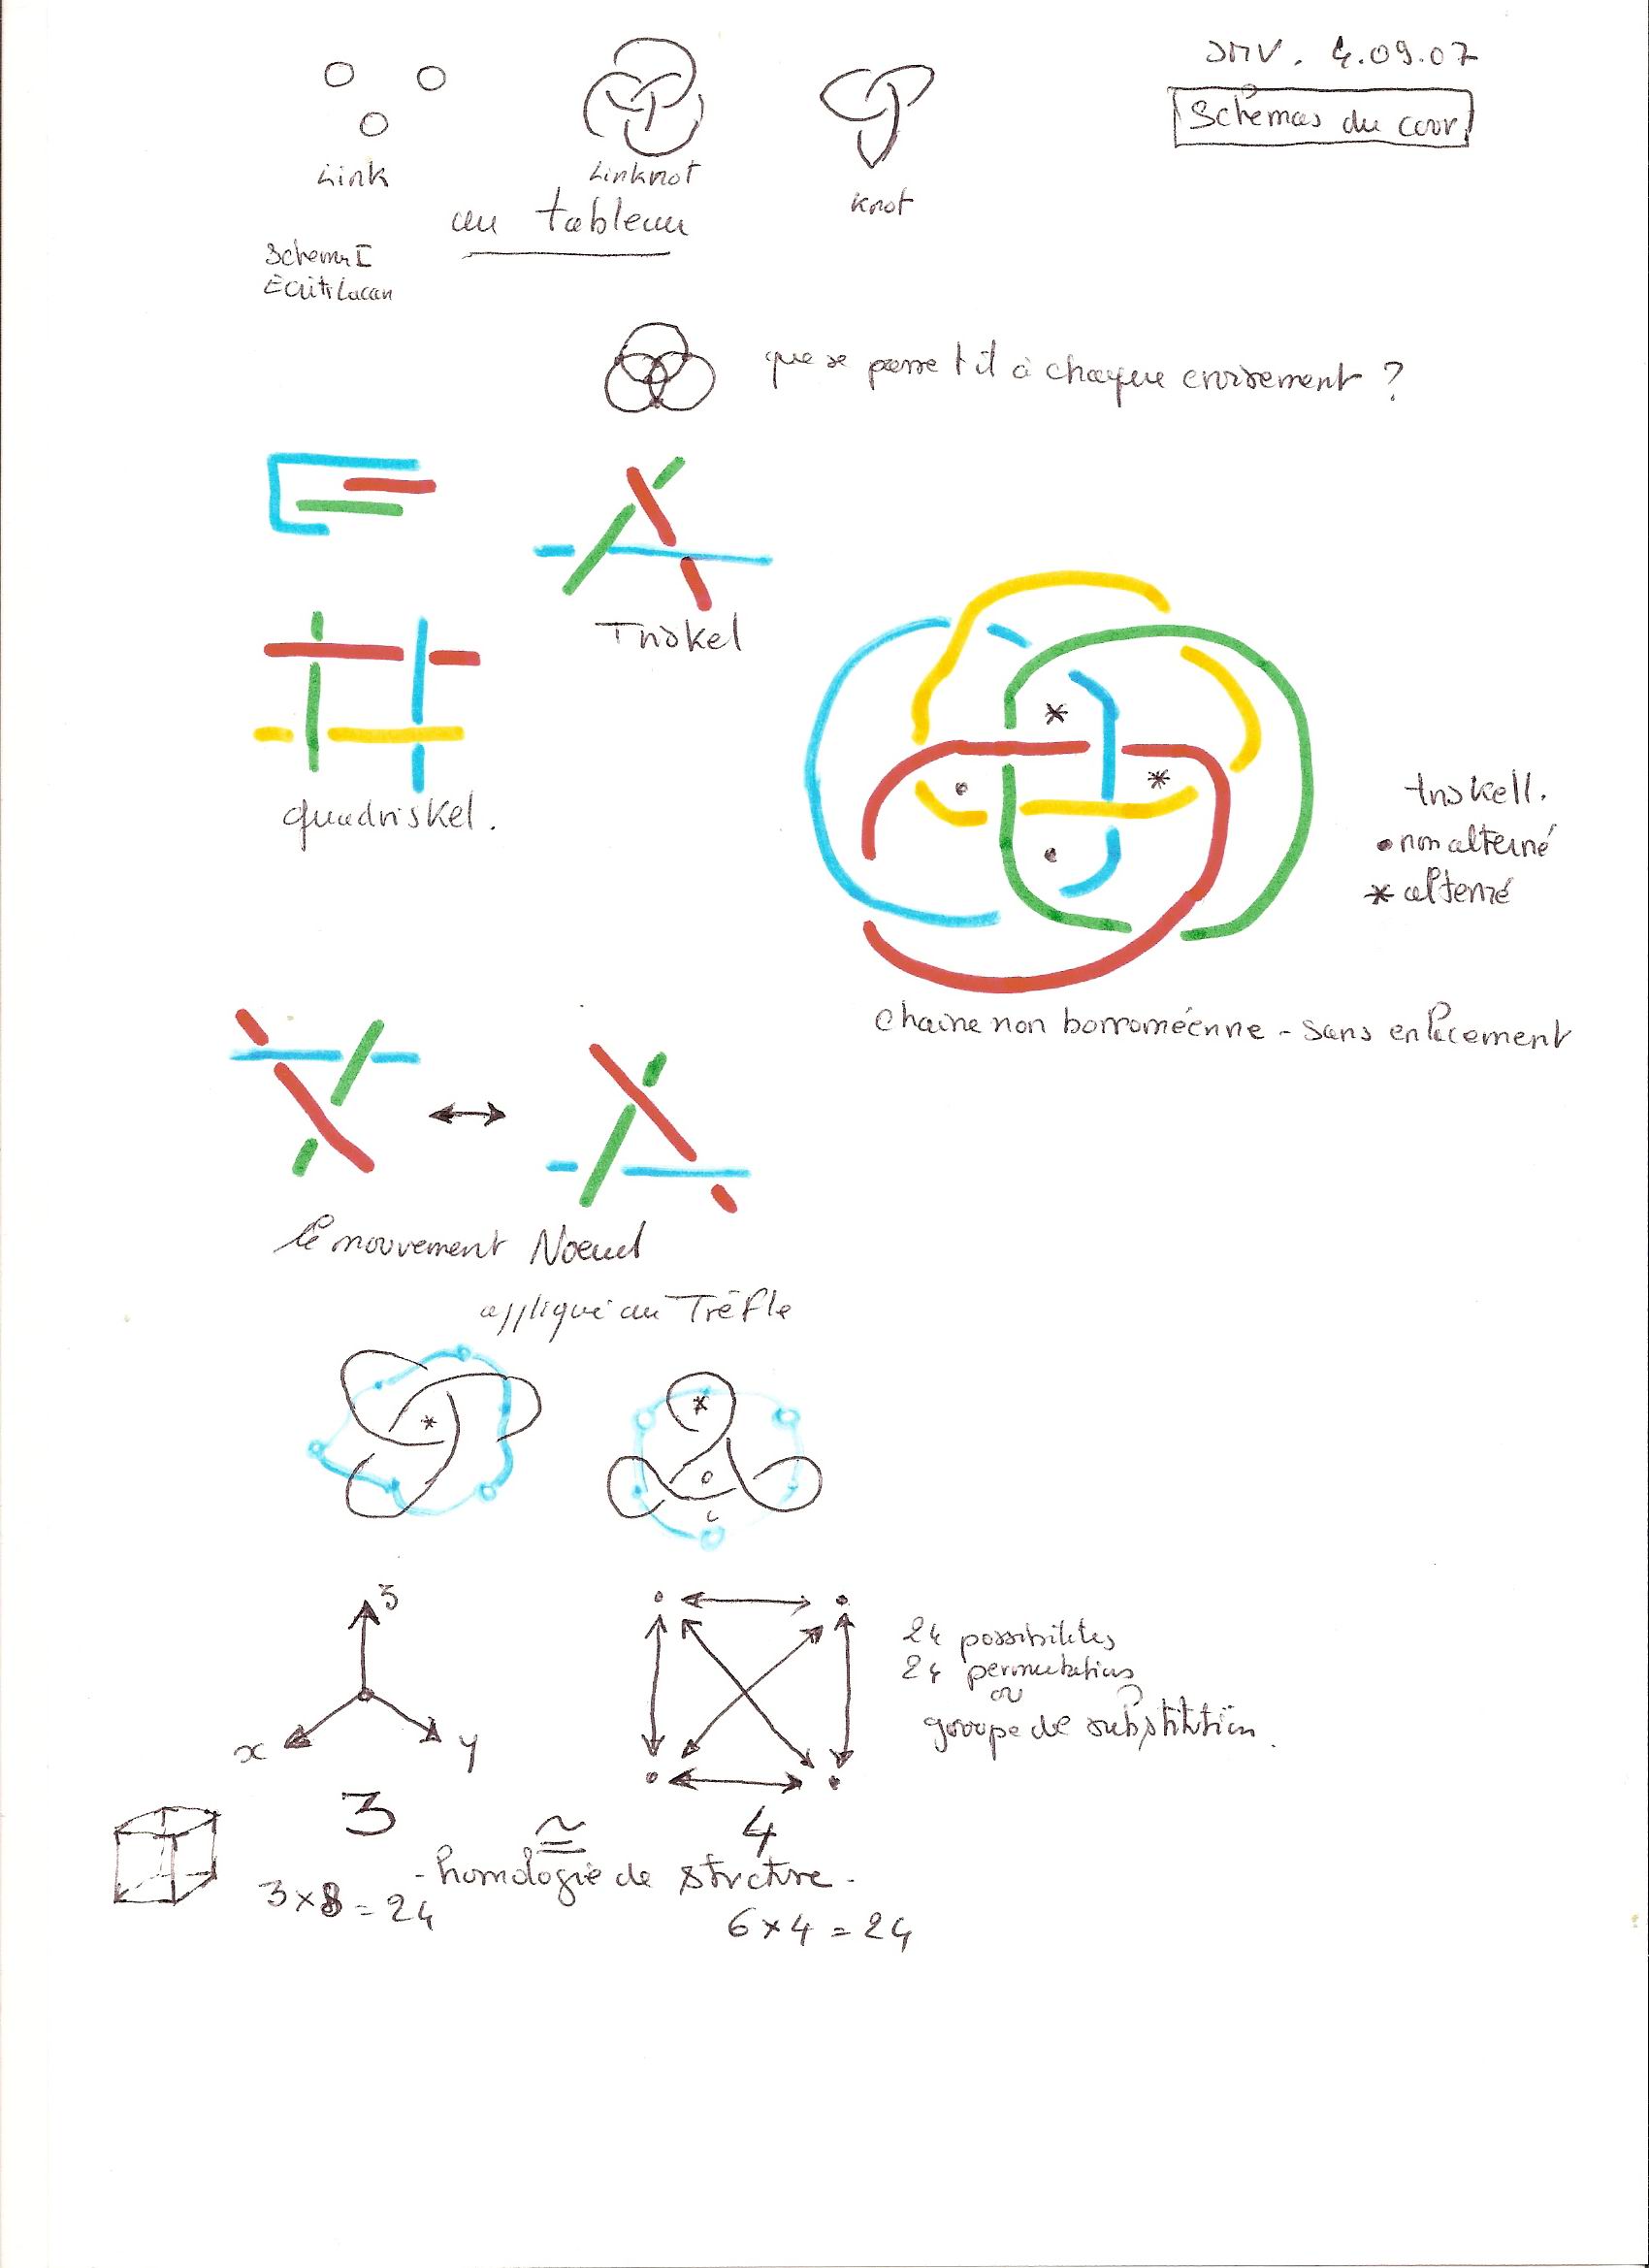 JMV. 4.09.07
Schémas du cour
Link
Linknot
knot
au tableau
Schema I
Ecrits Lacan
que se passe t il à chaque croisement ?
Triskel
quadriskel.
triskell.
• non alterné
* alterné
chaine non borroméenne - sans enlacement
le mouvement Noeud
appliqué au Trèfle
z
x
y
24 possibilités
24 permutations
ou
groupe de substitution.
3
≅
4
- homologie de structure -
3 x 8 = 24
6 x 4 = 24